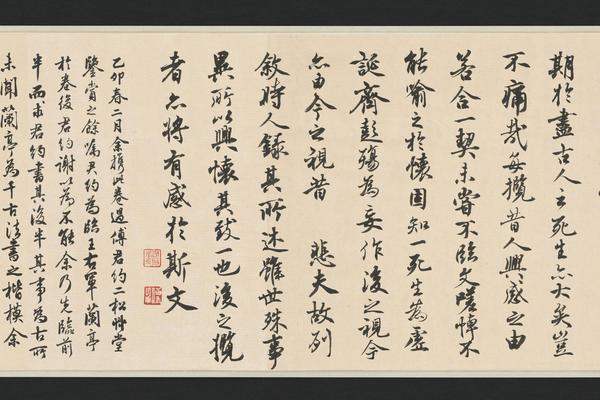 期於盡古人云死生亦大矣豈
不痛哉每攬昔人興感之由
若合一契未嘗不臨文嗟悼不
能喻之於懷固知一死生為虛
誕齊彭殤為妄作後之視今
亦由今之視昔 悲夫故列
敘時人錄其所述雖世殊事
異所以興懷其致一也後之攬
者亦將有感於斯文
乙卯春二月余攜此卷過傅君約二松艸堂
鑒賞之餘屬君約為臨王右軍蘭亭
於卷後君約謝以為不能余乃先臨前
半而求君約書其後半其事為古所
未聞蘭亭為千古法書之楷模余